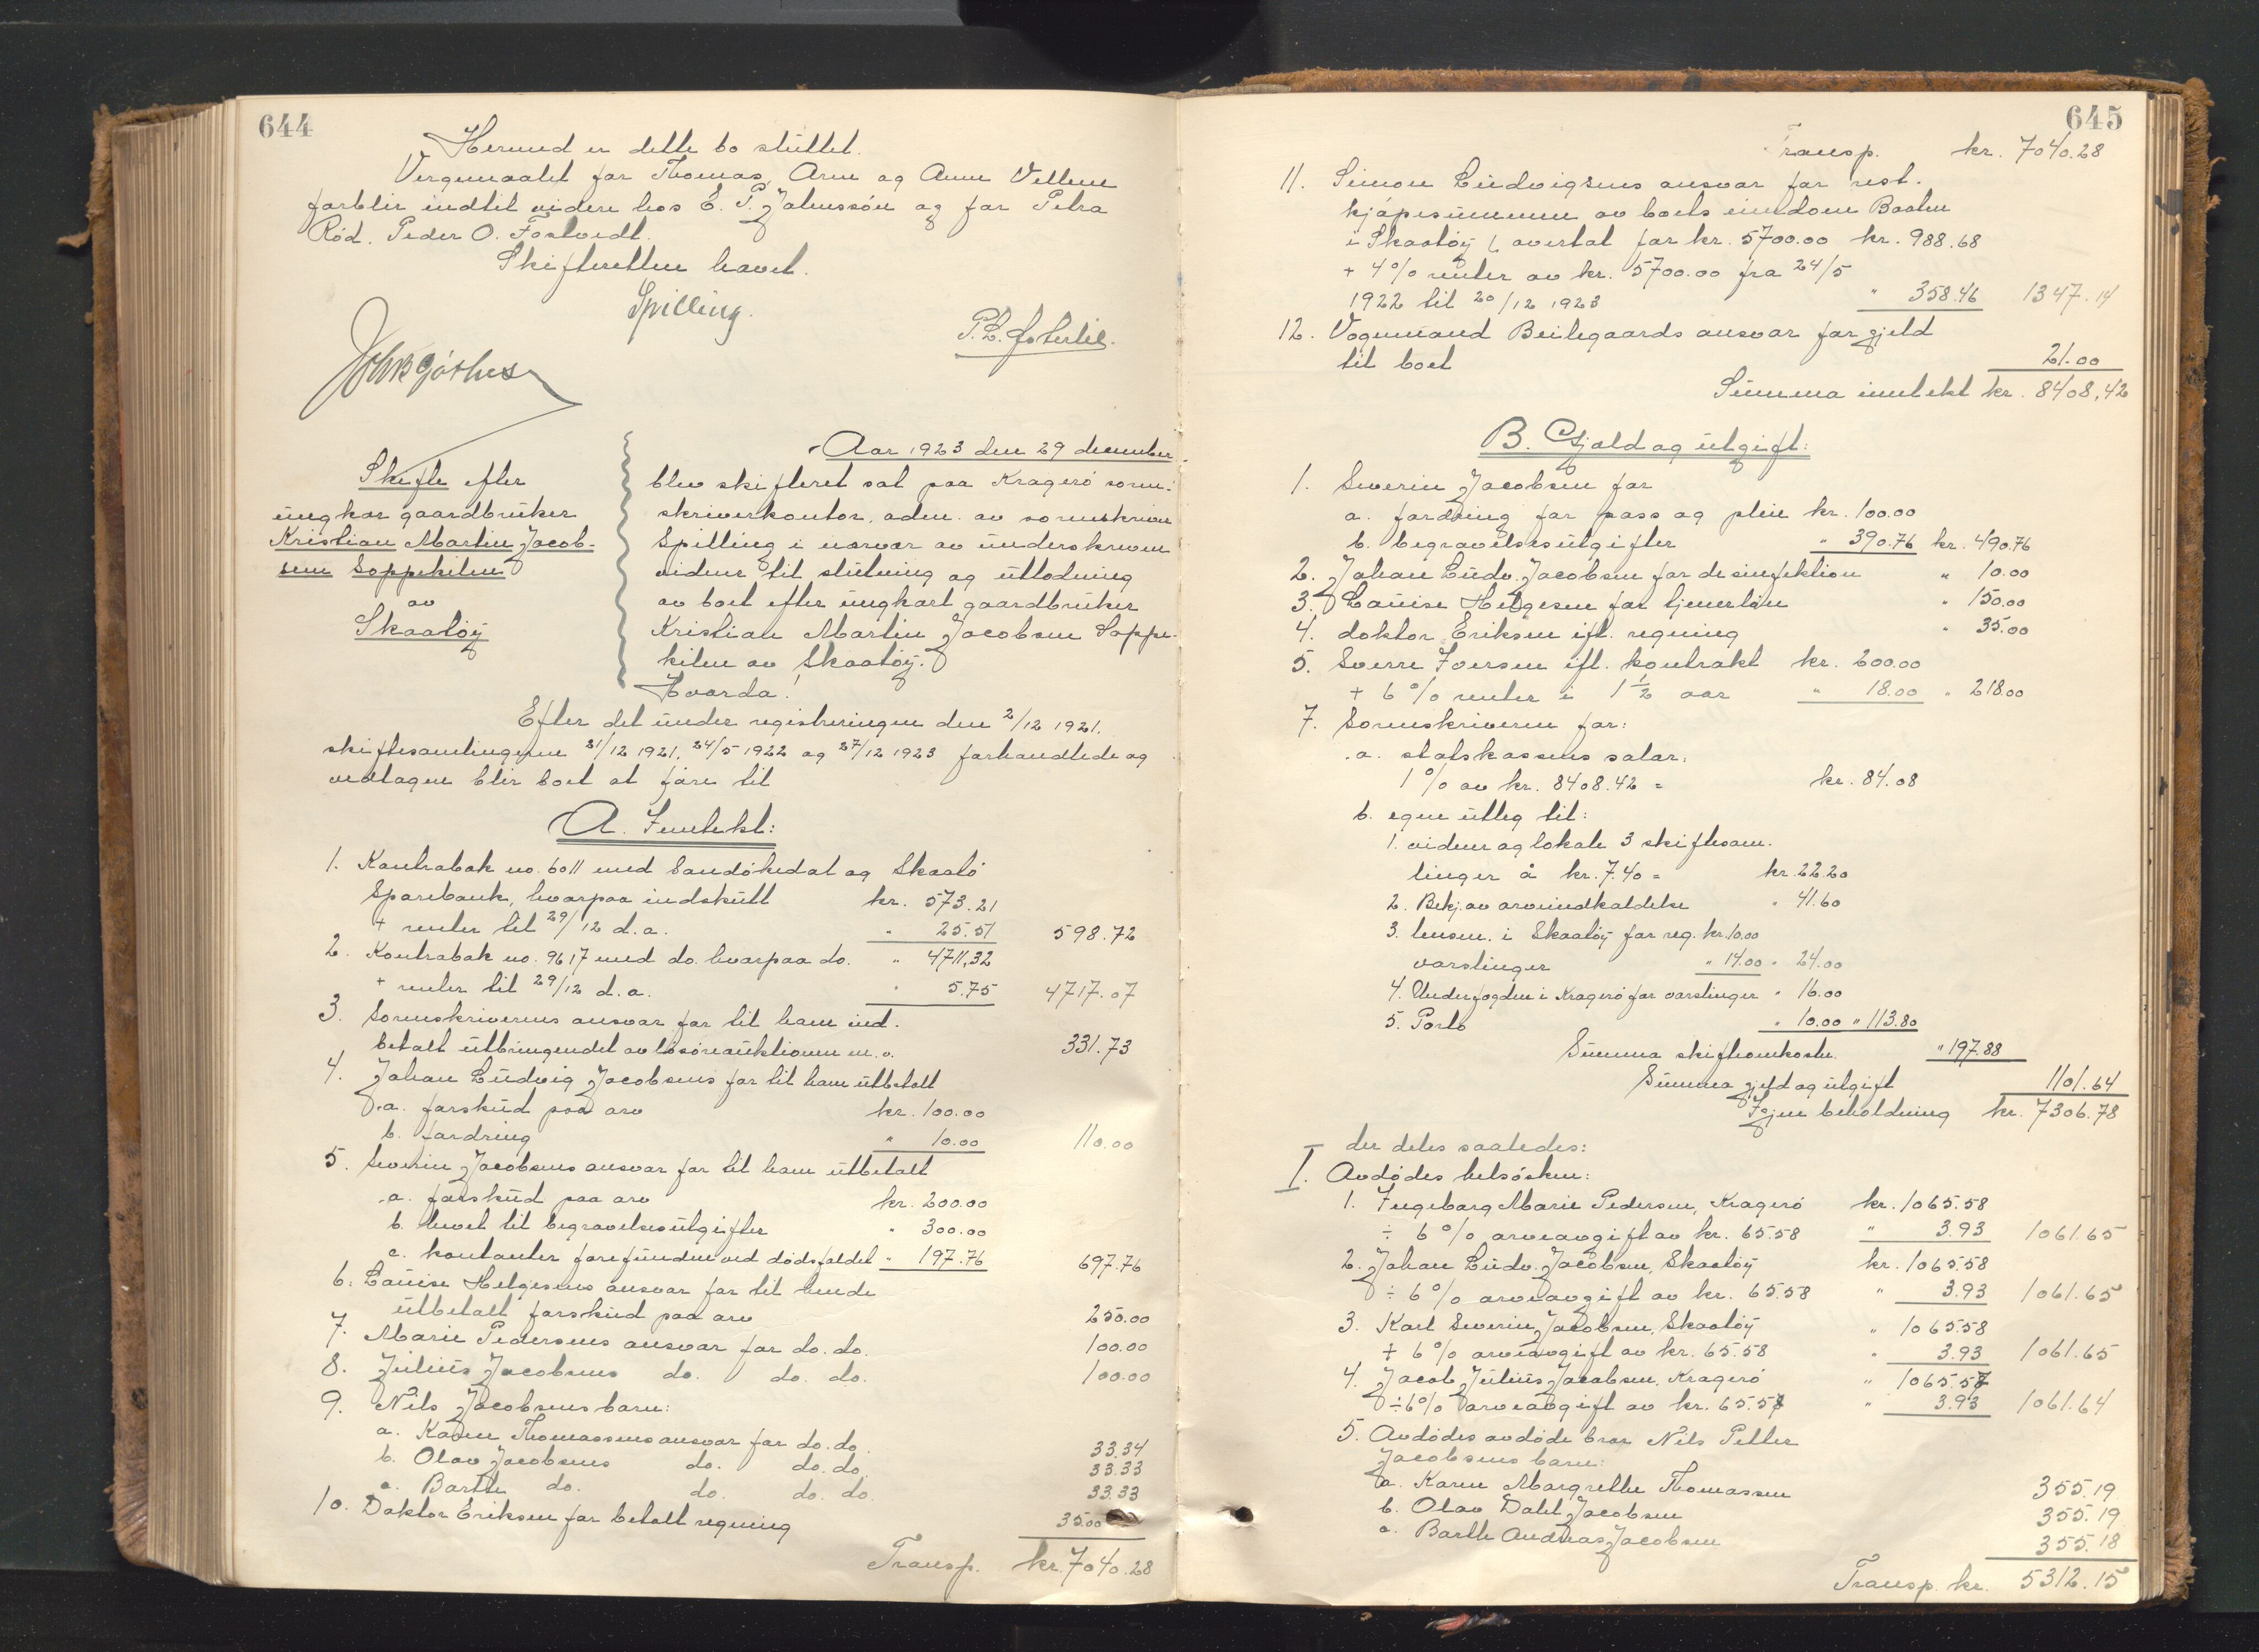 644
Hermed er dette bo sluttet.
Vergemaalet for Thomas, Arne og Anne Vellene
forblir indtil videre hos E. P. Johnssön og for Petra
Röd. Peder O. Fostvedt.
Skifteretten hævet.
Spilling.
Skifte efter
ungkar gaardbruker
Kristian Martin Jacob-
sen Soppekilen
av
Skaatöy
Aar 1923 den 29 december
blev skifteret sat paa Kragerö soren-
skriverkontor, adm. av sorenskriver
Spilling i nærvær av underskrevne
vidner til slutning og utlodning
av boet efter ungkarl gaardbruker
Kristian Martin Jacobsen Soppe-
kilen av Skaatöy.
Hvorda!
Efter det under registreringen den 2/12 1921.
skiftesamlingerne 21/12 1921, 24/5 1922 og 27/12 1923 forhandlede og
vedtagne blir boet at före til
A. Inntekt:
1. Kontrabok no. 6011 med Sandökedal og Skaatö
Sparebank, hvorpaa indskutt kr. 573.21
+ renter til 29/12 d.a. " 25.51 598.72
2. Kontrabok no. 9617 med do. hvorpaa do. " 4711,32
+ renter til 29/12 d.a. " 5.75 4717.07
3. Sorenskriverens ansvar for til ham ind-
betalt utbringendet av lösöreauktionen m.v. 331.73
4. Johan Ludvig Jacobsens for til ham utbetalt
a. forskud paa arv kr. 100.00
b. fordring " 10.00 110.00
5. Severin Jacobsens ansvar for til ham utbetalt
a. forskud paa arv kr. 200.00
b. hævet til begravelsesutgifter " 300.00
c. kontanter forefundne ved dödsfaldet " 197.76 697.76
6. Louise Helgesens ansvar for til hende
utbetalt forskud paa arv 250.00
7. Marie Pedersens ansvar for do. do. 100.00
8. Julius Jacobsens do. do. do. 100.00
9. Nils Jacobsens barn:
a. Karen Thomassens ansvar for do. do. 33.34
b. Olav Jacobsens do. do. do. 33.33
c. Barthe do. do. do. do. 33.33
10. Doktor Eriksen for betalt regning 35.00
Transp. kr. 7040.28
645
Transp. kr. 7040.28
11. Simon Ludvigsens ansvar for rest-
kjöpesummen av boets eiendom Baaten
i Skaatöy, overtat for kr. 5700.00 kr. 988.68
+ 4% renter av kr. 5700.00 fra 24/5
1922 til 20/12 1923 " 358.46 1347.14
12. Vognmand Beilegaards ansvar for gjeld
til boet 21.00
Summa inntekt kr. 8408,42
B. Gjeld og utgift:
1. Severin Jacobsen for
a. fordring for pass og pleie kr. 100.00
b. begravelsesutgifter " 390.76 kr. 490.76
2. Johan Ludv. Jacobsen for desinfektion " 10.00
3. Louise Helgesen for tjenerlön " 150.00
4. doktor Eriksen ifl. regning " 35.00
5. Sverre Iversen ifl. kontrakt kr. 200.00
+ 6% renter i 1 1/2 aar " 18.00 " 218.00
7. Sorenskriveren for:
a. statskassens salær,
1% av kr. 8408.42 = kr. 84.08
b. egne utlæg til:
1. vidner og lokale 3 skiftesam-
linger å kr. 7.40 = kr. 22.20
2. Bekj. av arveindkaldelse " 41.60
3. lensm. i Skaatöy for reg. kr. 10.00
varslinger " 14.00 " 24.00
4. Underfogden i Kragerö for varslinger " 16.00
5. Porto " 10.00 " 113.80
Summa skifteomkostn. " 197.88
Summa gjeld og utgift 1101.64
Igjen beholdning kr. 7306.78
der deles saaledes:
I. Avdödes helsösken:
1. Ingeborg Marie Pedersen, Kragerö kr. 1065.58
÷ 6% arveavgift av kr. 65.58 " 3.93 1061.65
2. Johan Ludv. Jacobsen, Skaatöy kr. 1065.58
÷ 6% arveavgift av kr. 65.58 " 3.93 1061.65
3. Karl Severin Jacobsen, Skaatöy " 1065.58
÷ 6% arveavgift av kr. 65.58 " 3.93 1061.65
4. Jacob Julius Jacobsen, Kragerö " 1065.57
÷ 6% arveavgift av kr. 65.57 " 3.93 1061.64
5. Avdödes avdöde bror Nils Petter
Jacobsens barn:
a. Karen Margrethe Thomassen 355.19
b. Olav Dahl Jacobsen 355.19
c. Barthe Andreas Jacobsen 355.18
Transp. kr. 5312.15